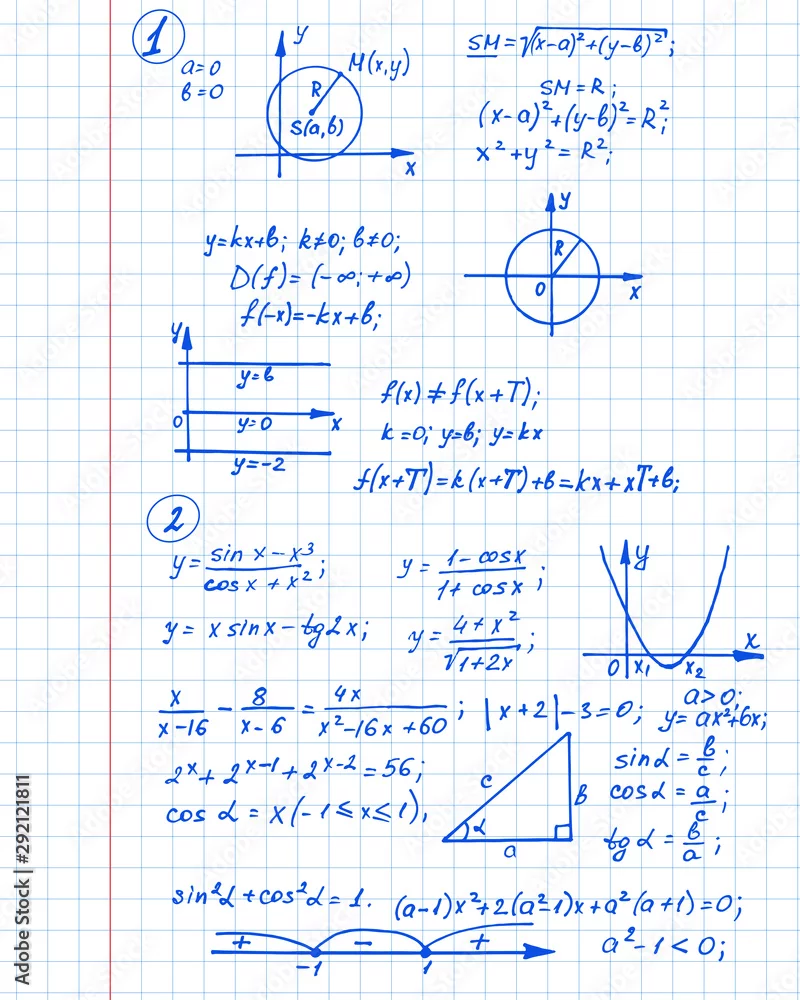 1
a=0
b=0
y
M(x,y)
R
S(a,b)
x
SM=√(x-a)²+(y-b)²;
SM=R;
(x-a)²+(y-b)²=R²;
x²+y²=R²;
y
R
0
x
y=kx+b; k≠0; b≠0;
D(f)=(-∞;+∞)
f(-x)=-kx+b;
y
y=b
0
y=0
x
y=-2
f(x)≠f(x+T);
k=0; y=b; y=kx
f(x+T)=k(x+T)+b=kx+xT+b;
2
y=(sin x-x³)/(cos x+x²);
y=(1-cosx)/(1+cosx);
y=x sinx-tg2x;
y=(4+x²)/√(1+2x);
y
x
0
x₁
x₂
a>0;
y=ax²+bx;
x/(x-16)-8/(x-6)=4x/(x²-16x+60); |x+2|-3=0;
2ˣ+2ˣ⁻¹+2ˣ⁻²=56;
cos α=x(-1≤x≤1),
c
b
α
a
sinα=b/c;
cosα=a/c;
tgα=b/a;
sin²α+cos²α=1.
(a-1)x²+2(a²-1)x+a²(a+1)=0;
+ - +
-1 1
a²-1<0;
Adobe Stock | #292121811